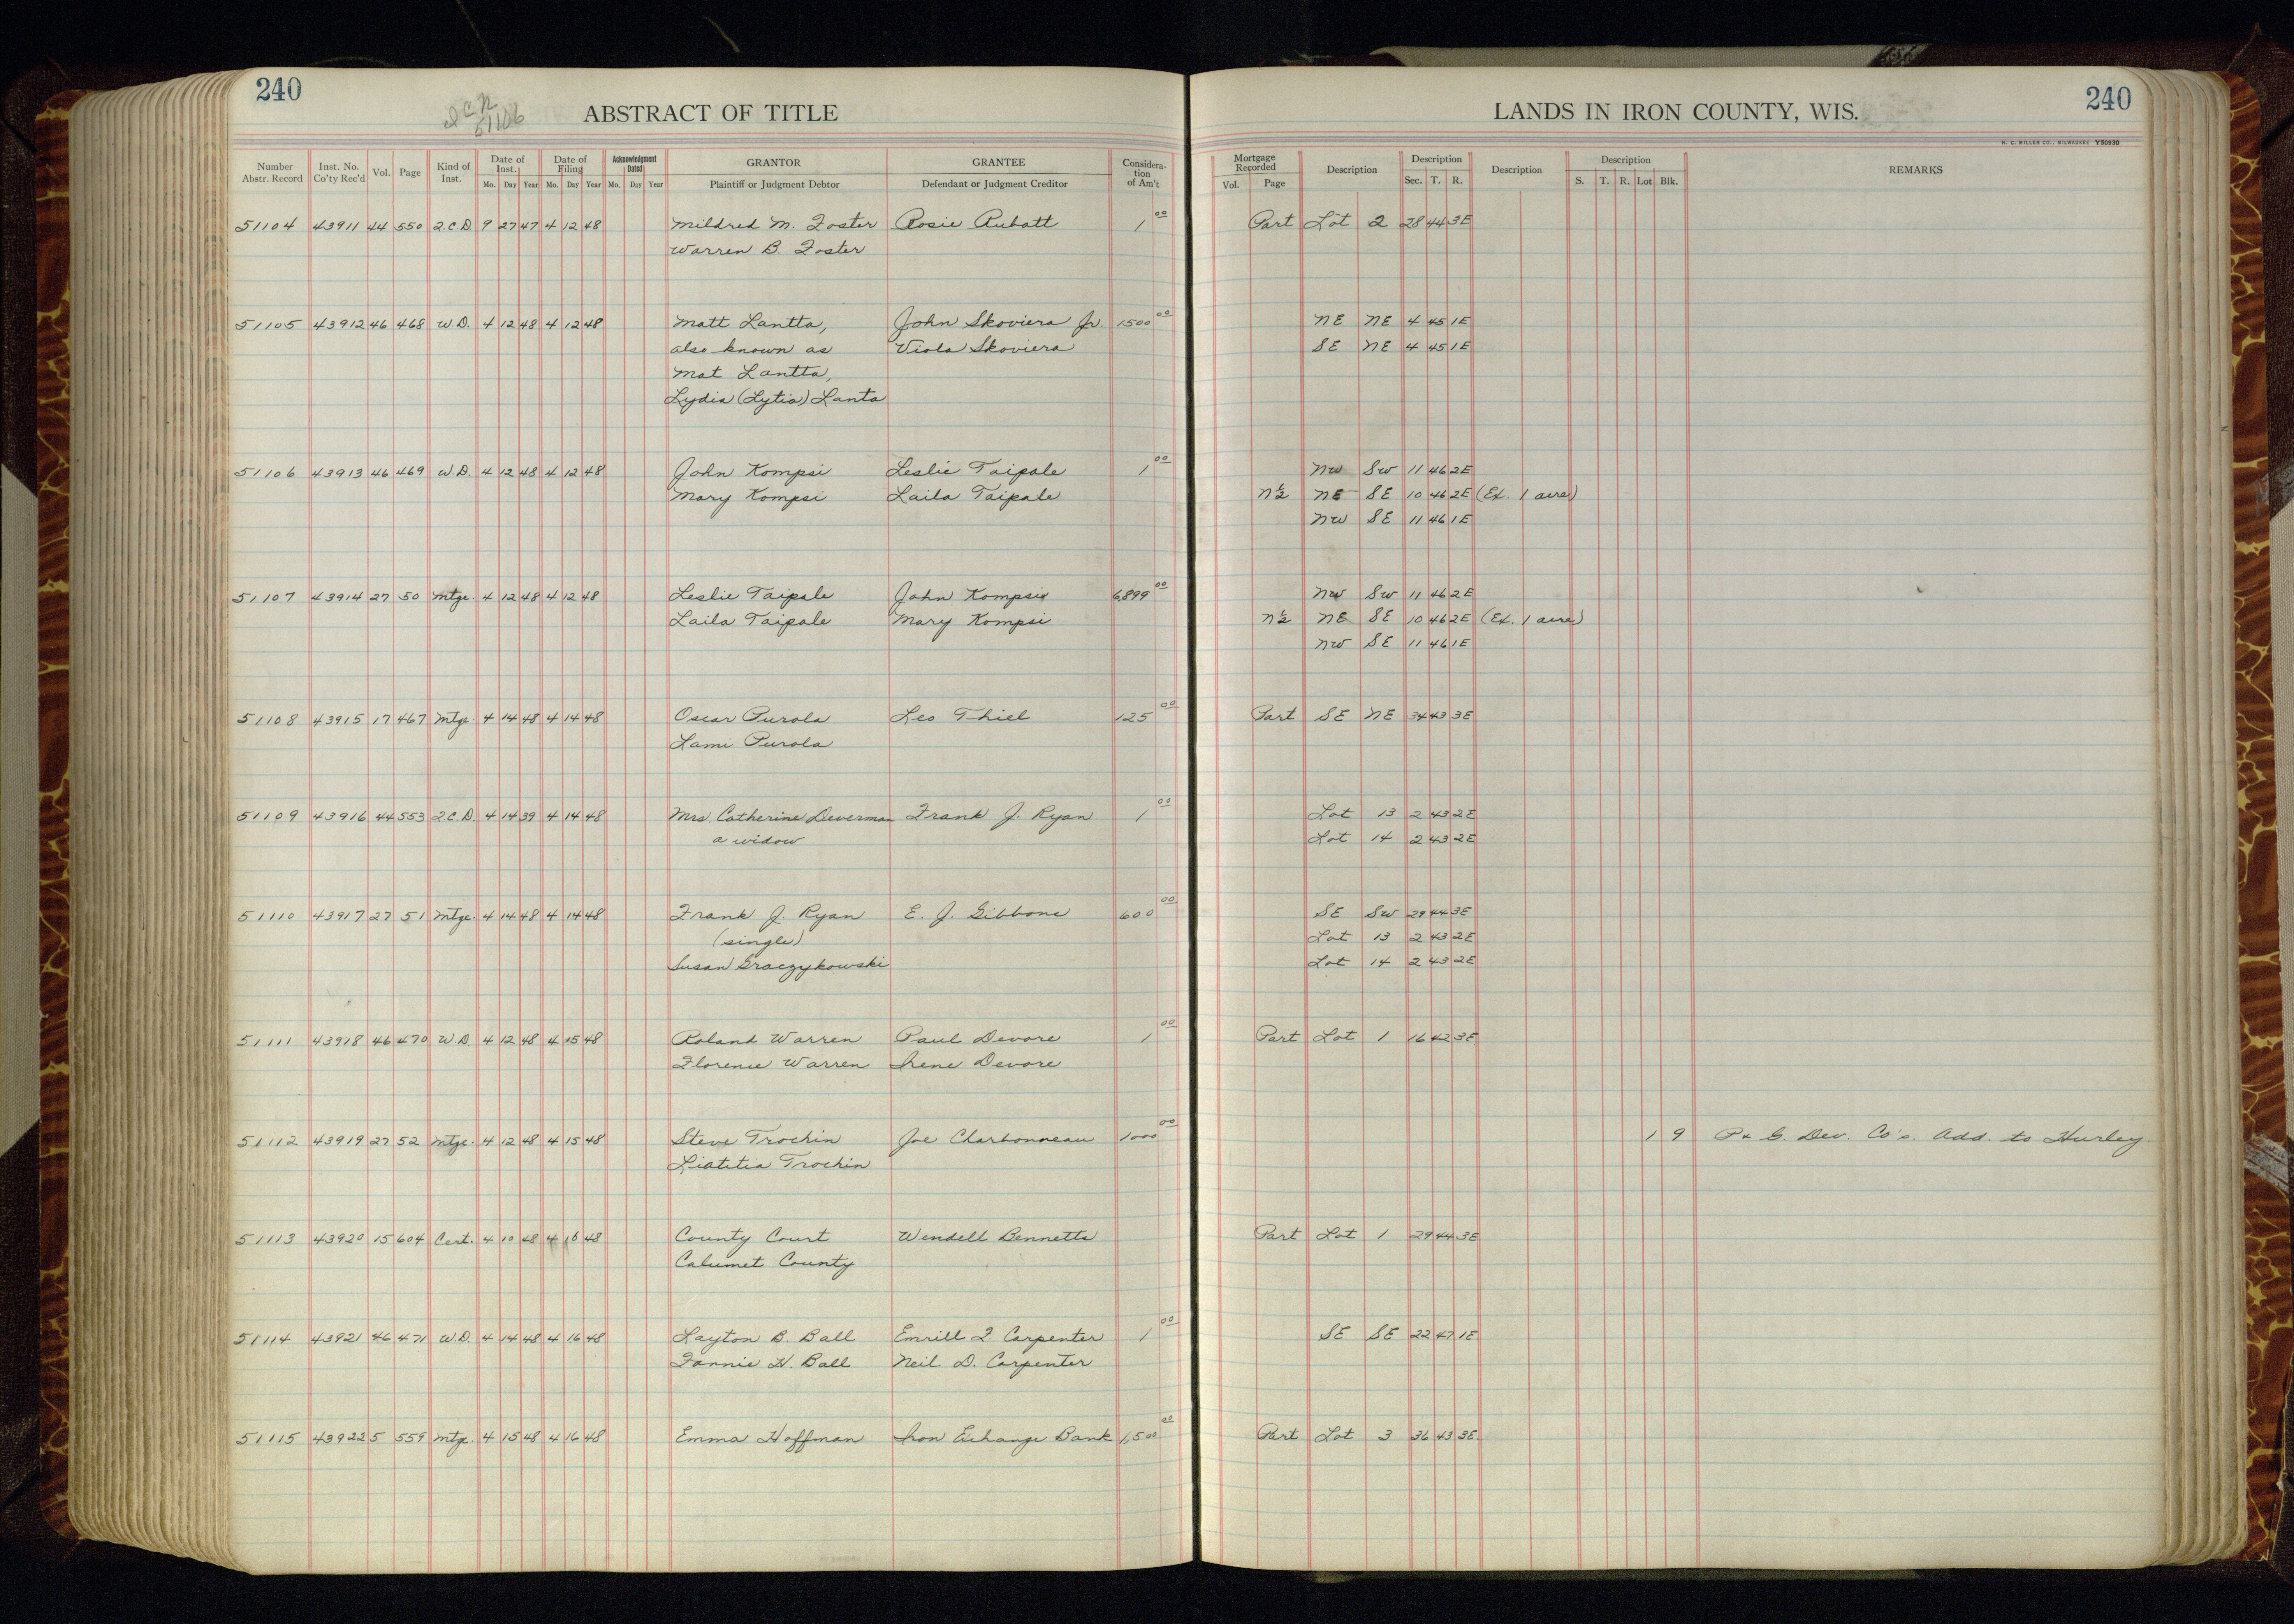 240
51106
ABSTRACT OF TITLE
LANDS IN IRON COUNTY, WIS.
240
H. C. MILLER CO., MILWAUKEE Y50930
Number Abstr. Record Inst. No. Co'ty Rec'd Vol. Page Kind of Inst. Date of Inst. Mo. Day Year Date of Filing Mo. Day Year Acknowledgment Dated Mo. Day Year GRANTOR Plaintiff or Judgment Debtor GRANTEE Defendant or Judgment Creditor Considera-tion of Am't Mortgage Recorded Vol. Page Description Description Sec. T. R. Description Description S. T. R. Lot Blk. REMARKS
51104 43911 44 550 Q.C.D. 9 27 47 4 12 48 Mildred M. Foster Rosie Aubatt 1 00 Part Lot 2 28 44 3E
Warren B. Foster
51105 43912 46 468 W.D. 4 12 48 4 12 48 Matt Lantta, John Skoviera Jr. 1500 00 NE NE 4 45 1E
also known as Viola Skoviera SE NE 4 45 1E
Mat Lantta,
Lydia (Lytia) Lanta
51106 43913 46 469 W.D. 4 12 48 4 12 48 John Kompsi Leslie Taipale 1 00 NW SW 11 46 2E
Mary Kompsi Laila Taipale N½ NE SE 10 46 2E (Ex. 1 acre)
NW SE 11 46 1E
51107 43914 27 50 Mtge. 4 12 48 4 12 48 Leslie Taipale John Kompsi 6,899 00 NW SW 11 46 2E
Laila Taipale Mary Kompsi N½ NE SE 10 46 2E (Ex. 1 acre)
NW SE 11 46 1E
51108 43915 17 467 Mtge. 4 14 48 4 14 48 Oscar Purola Leo Thiel 125 00 Part SE NE 34 43 3E
Lami Purola
51109 43916 44 553 Q.C.D. 4 14 39 4 14 48 Mrs. Catherine Deverman Frank J. Ryan 1 00 Lot 13 2 43 2E
a widow Lot 14 2 43 2E
51110 43917 27 51 Mtge. 4 14 48 4 14 48 Frank J. Ryan E. J. Gibbons 600 00 SE SW 29 44 3E
(single) Lot 13 2 43 2E
Susan Graczykowski Lot 14 2 43 2E
51111 43918 46 470 W.D. 4 12 48 4 15 48 Roland Warren Paul Devore 1 00 Part Lot 1 16 42 3E
Florence Warren Irene Devore
51112 43919 27 52 Mtge. 4 12 48 4 15 48 Steve Trochin Joe Charbonneau 1000 00 1 9 P. & G. Dev. Co's. Add. to Hurley.
Liatitia Trochin
51113 43920 15 604 Cert. 4 10 48 4 16 48 County Court Wendell Bennetts Part Lot 1 29 44 3E
Calumet County
51114 43921 46 471 W.D. 4 14 48 4 16 48 Layton B. Ball Emrill F Carpenter 1 00 SE SE 22 47 1E
Fannie H. Ball Neil D. Carpenter
51115 43922 5 559 Mtge. 4 15 48 4 16 48 Emma Hoffman Iron Exchange Bank 1,500 00 Part Lot 3 36 43 3E